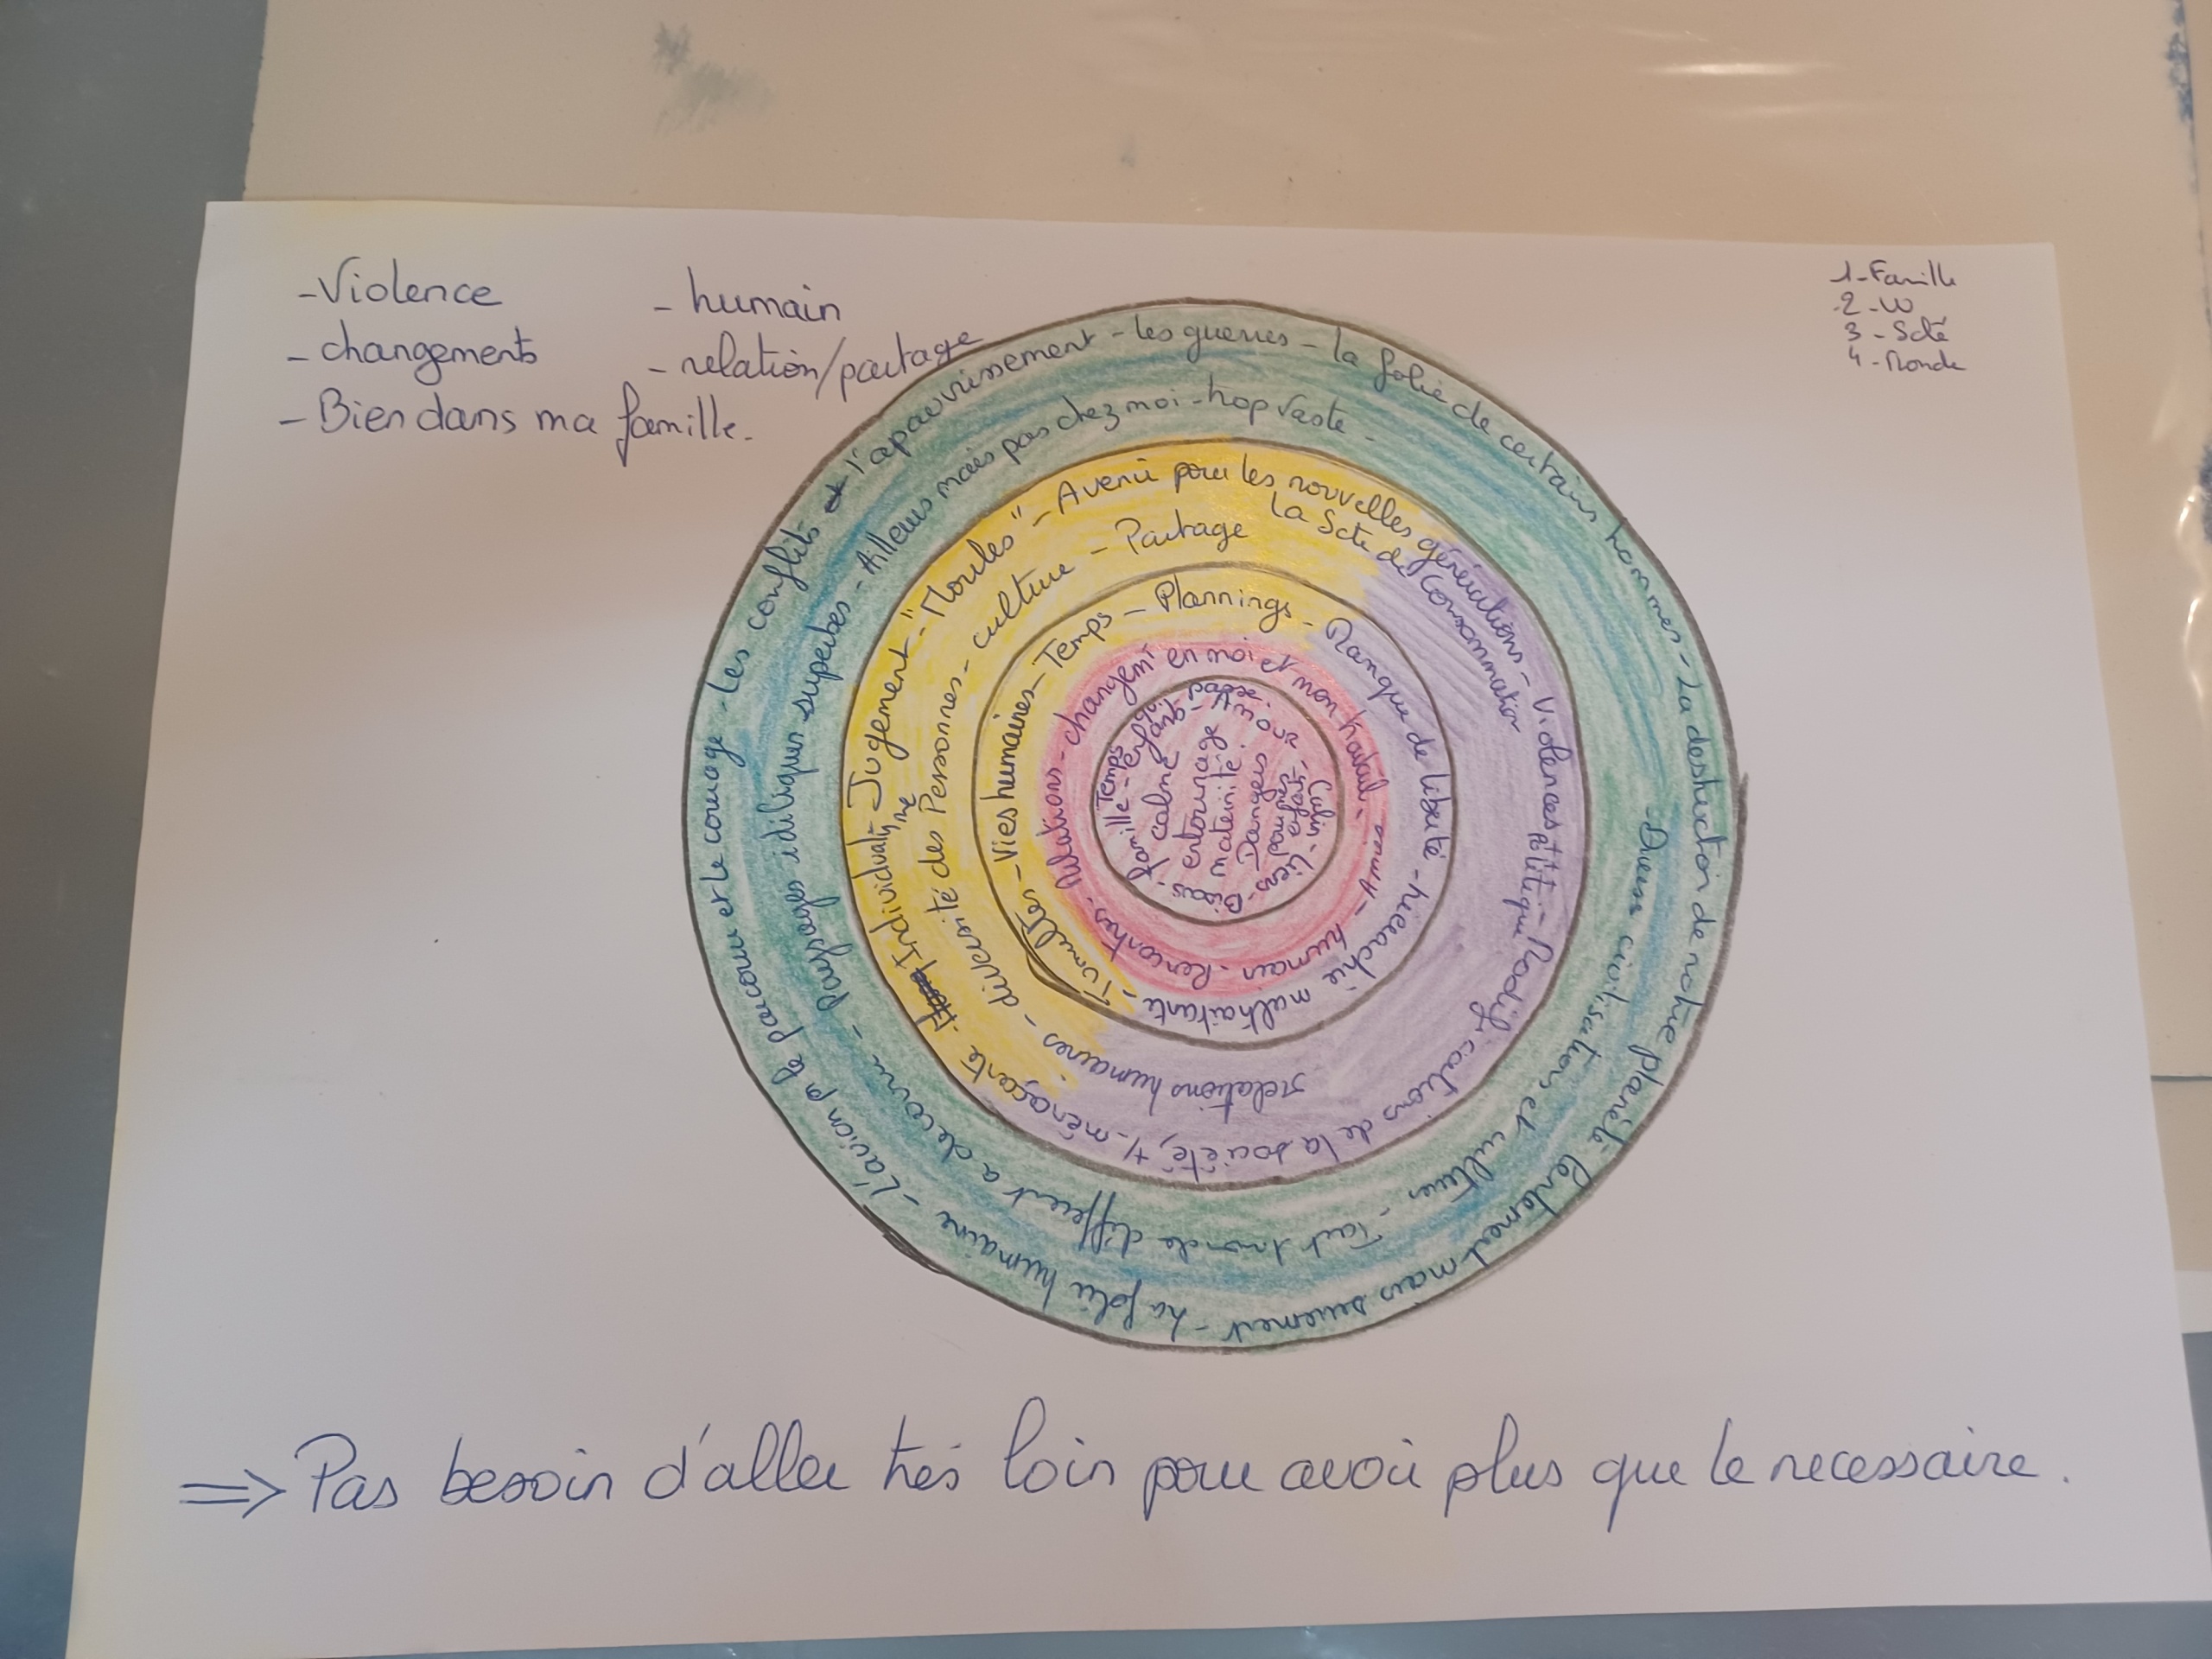 -Violence
- changements
- Bien dans ma famille.
- humain
- relation/partage
1-Famille
2-W
3-Scté
4-Monde
les conflits et l'apauvrissement - les guerres - la folie de certains hommes - La destruction de notre planète lentement mais surement - La folie humaine - L'avion pr le parcourir et le courage -
Paysages idiliques superbes - Ailleurs mais pas chez moi - trop vaste -
civilisations et cultures - Tout monde différent a découvrir -
Jugement - "Moules" - Avenir pour les nouvelles générations - Violences politique - Modifications de la société, +/- menaçante
Individualisme
La Scte de Consommation
relations humaines - diversité des Personnes - culture - Partage
Vies humaines - Temps - Plannings - Manque de liberté - hierarchie maltraitante - Tumultes -
Relations - changemt en moi et mon travail - humain - Rencontres -
Famille - Temps
calme
entourage
maternité
Amour
Liens - Bisous -
⇒ Pas besoin d'aller très loin pour avoir plus que le necessaire.